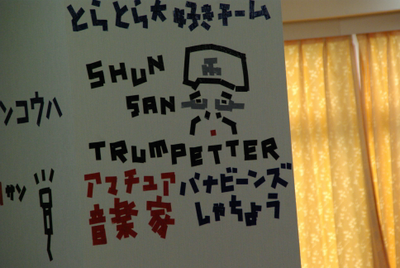 とらとら大好きチーム
SHUN
SAN
TRUMPETTER
アマチュア バナビーンズ
音楽家 しゃちょう
ンコウハ
サン